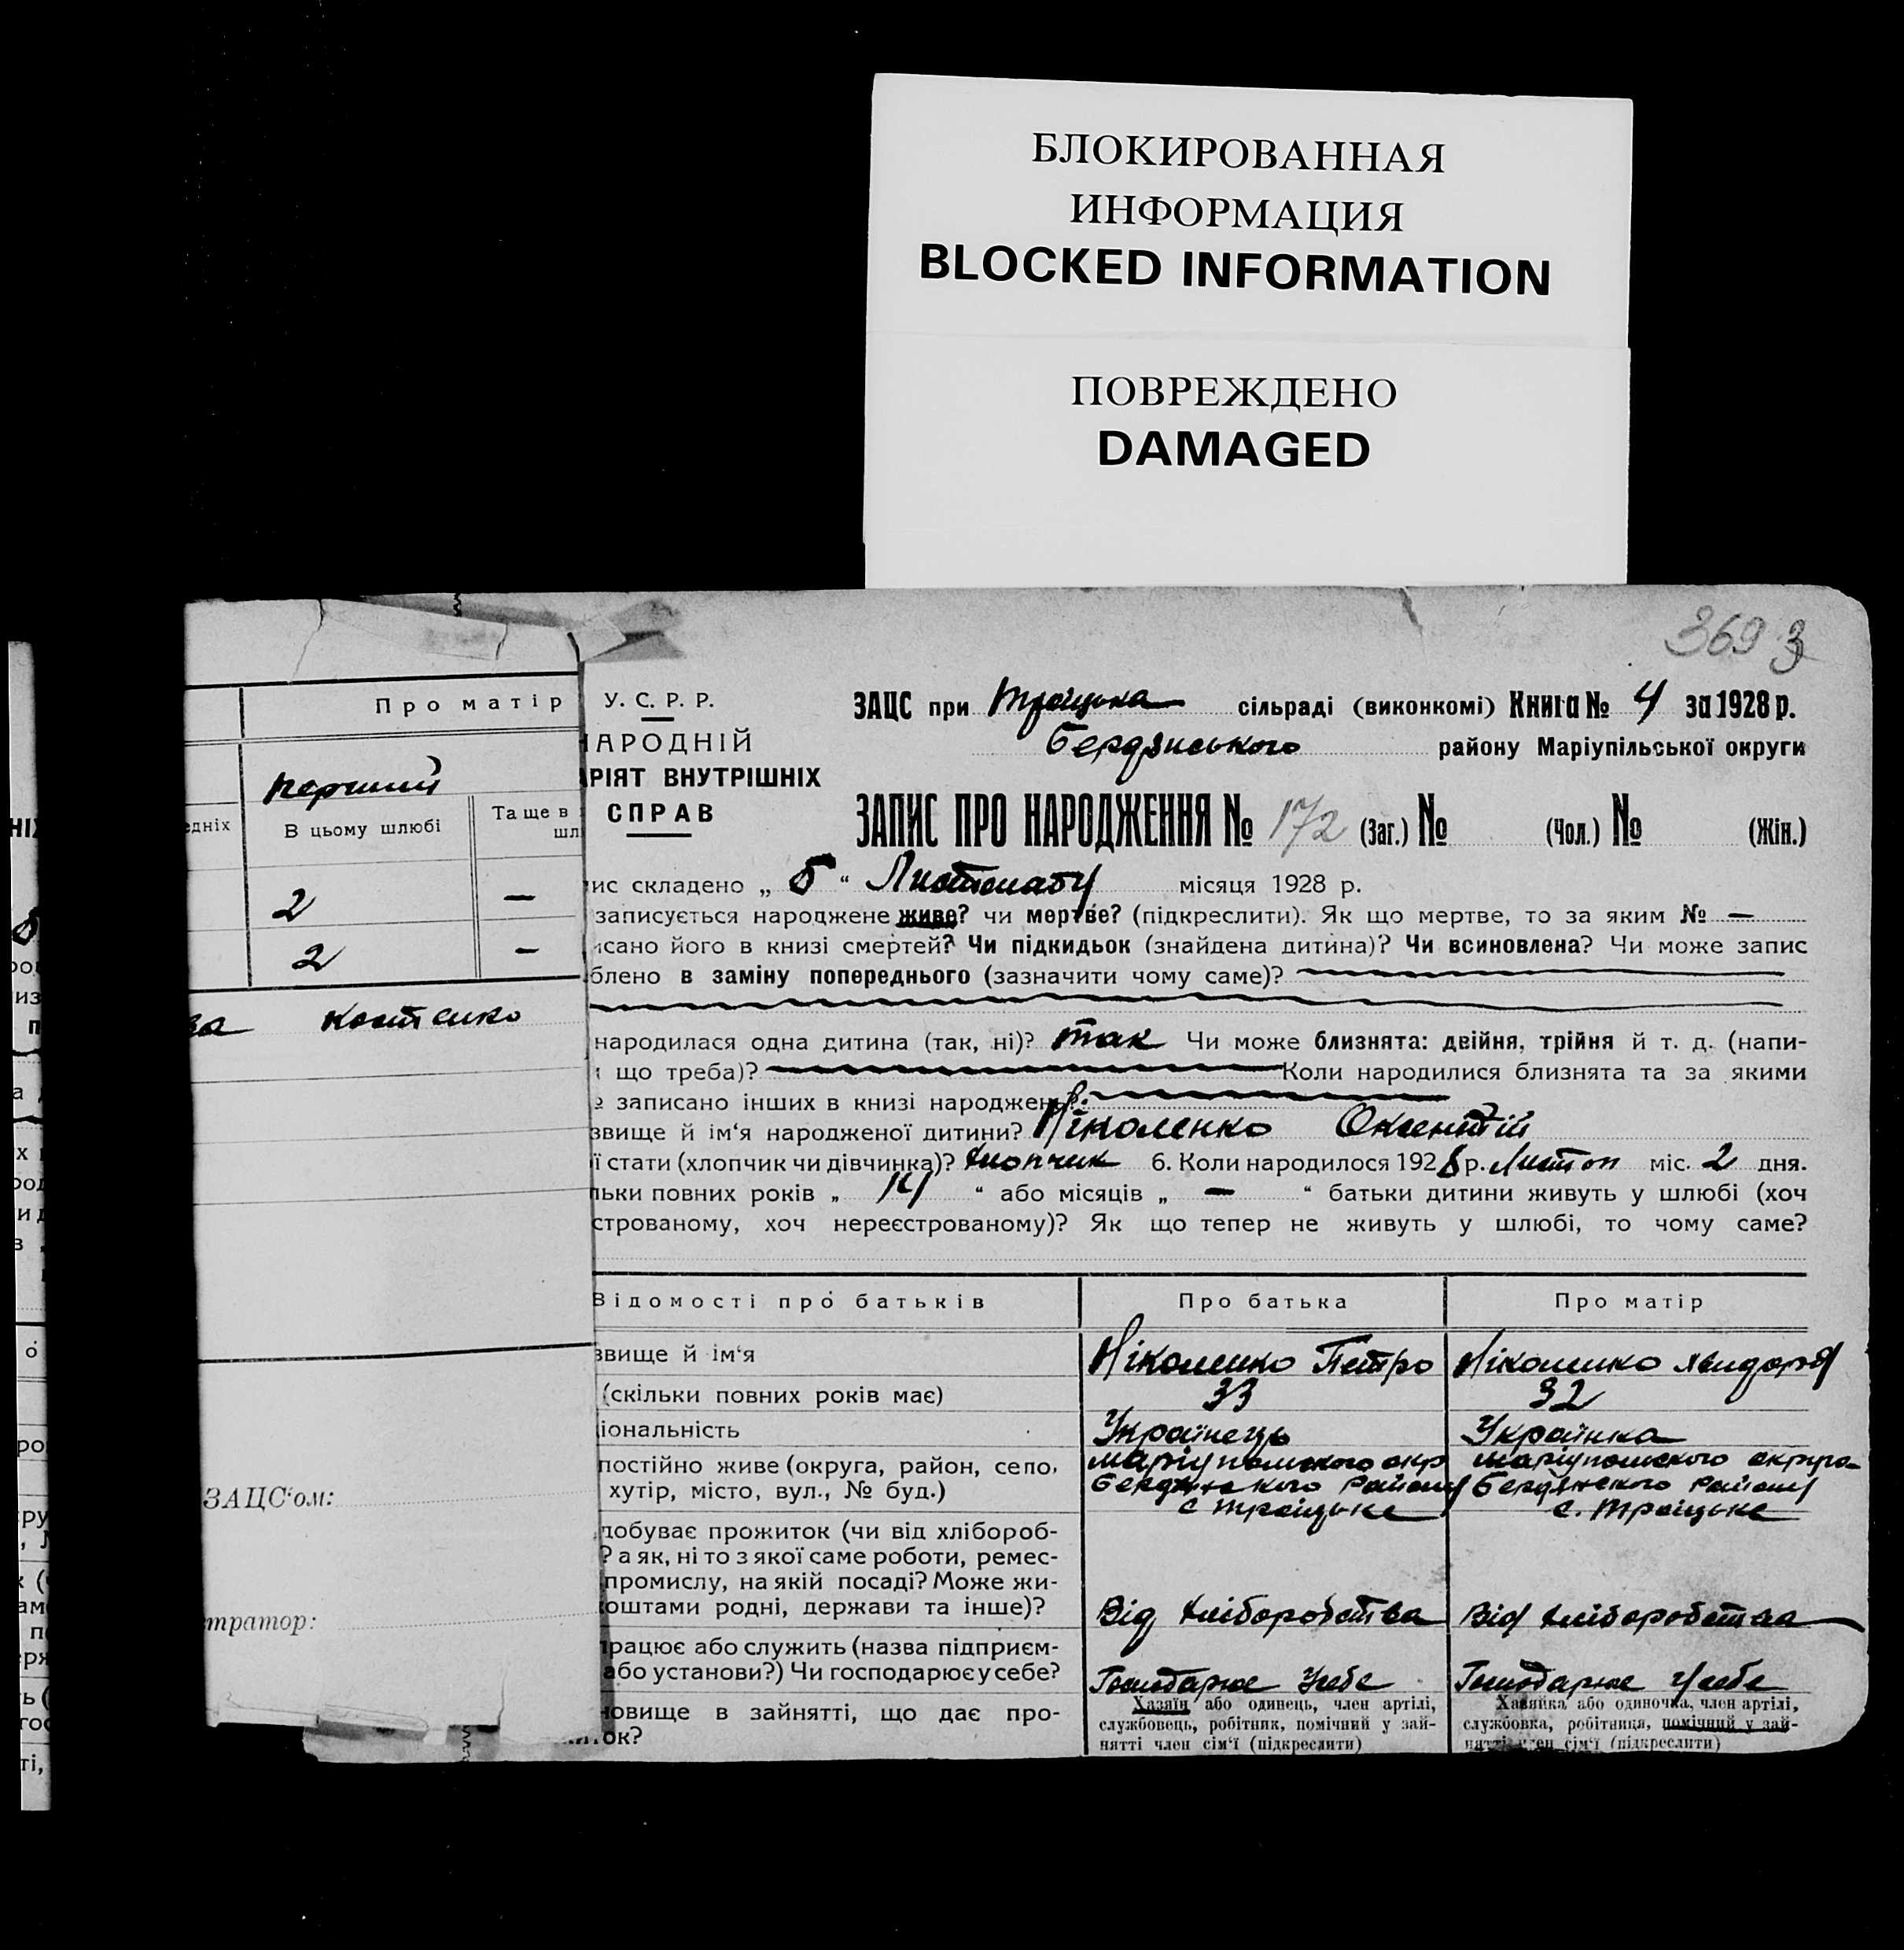 БЛОКИРОВАННАЯ
ИНФОРМАЦИЯ
BLOCKED INFORMATION
ПОВРЕЖДЕНО
DAMAGED
369 3
Про матір
перший
едніх
В цьому шлюбі
Та ще в
шл
2 —
2 —
ва Костенко
ЗАЦС'ом:
тратор:
У. С. Р. Р.
НАРОДНІЙ
РІЯТ ВНУТРІШНІХ
СПРАВ
ЗАЦС при Троїцька сільраді (виконкомі) Книга № 4 за 1928 р.
Бердянського району Маріупільської округи
ЗАПИС ПРО НАРОДЖЕННЯ № 172 (Заг.) № (Чол.) № (Жін.)
ис складено „ 5 “ Листопаду місяця 1928 р.
записується народжене живе? чи мертве? (підкреслити). Як що мертве, то за яким № —
исано його в книзі смертей? Чи підкидьок (знайдена дитина)? Чи всиновлена? Чи може запис
блено в заміну попереднього (зазначити чому саме)?
народилася одна дитина (так, ні)? так Чи може близнята: двійня, трійня й т. д. (напи-
що треба)? Коли народилися близнята та за якими
записано інших в книзі народжень?
звище й ім'я народженої дитини? Ніколенко Оксентій
ї стати (хлопчик чи дівчинка)? хлопчик 6. Коли народилось 1928 р. Листоп міс. 2 дня.
льки повних років „ 14 “ або місяців „ — “ батьки дитини живуть у шлюбі (хоч
строваному, хоч нереєстрованому)? Як що тепер не живуть у шлюбі, то чому саме?
Відомості про батьків
Про батька
Про матір
звище й ім'я
Ніколенко Петро
Ніколенко
(скільки повних років має)
33
32
іональність
Українець
Українка
постійно живе (округа, район, село,
хутір, місто, вул., № буд.)
Маріупольского окр
Бердянского Району
с Троїцьке
Маріупольского округа
Бердянского Району
с. Троїцьке
добуває прожиток (чи від хлібороб-
? а як, ні то з якої саме роботи, ремес-
промислу, на якій посаді? Може жи-
коштами родні, держави та інше)?
Від хліборобства
Від хліборобства
працює або служить (назва підприєм-
або установи?) Чи господарює у себе?
Господарює Усебе
Господарює Усебе
новище в зайнятті, що дає про-
ток?
Хазяїн або одинець, член артілі,
службовець, робітник, помічний у зай-
нятті член сім'ї (підкреслити)
Хазяйка або одиночка, член артілі,
службовка, робітниця, помічний у зай-
нятті член сім'ї (підкреслити)